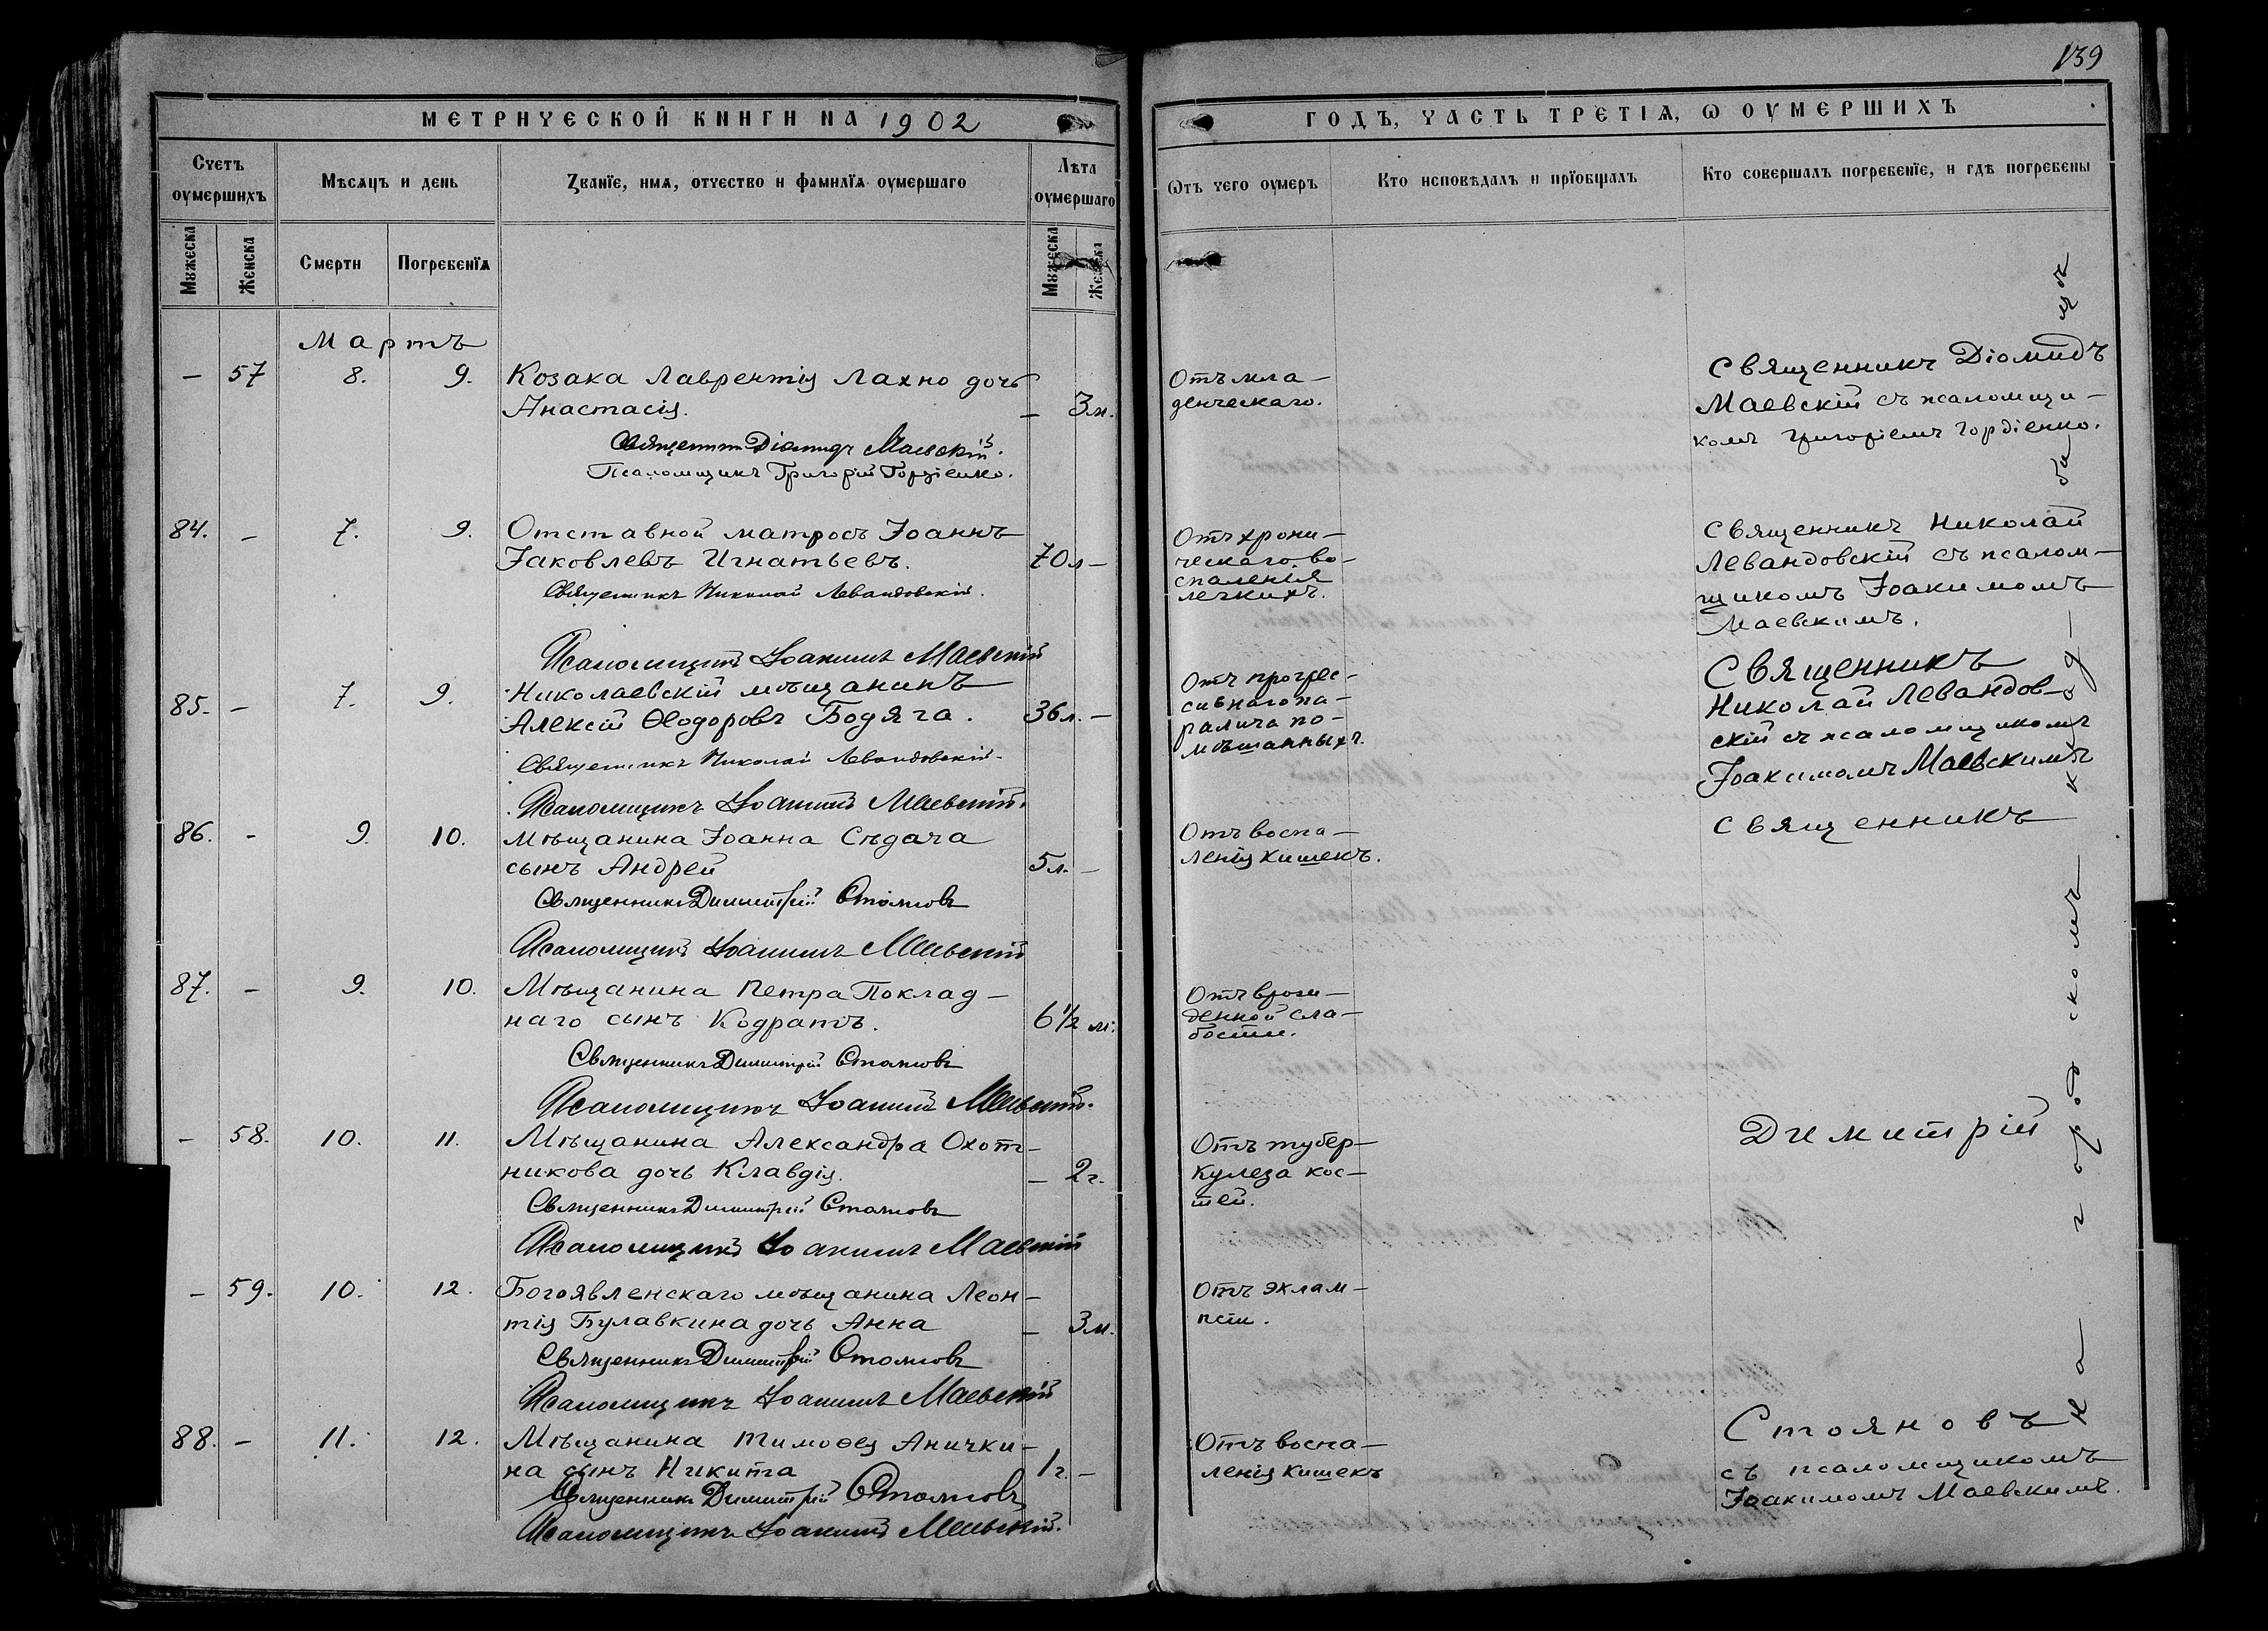 139
МЕТРИЧЕСКОЙ КНИГИ НА 1902
ГОДЪ, ЧАСТЬ ТРЕТІѦ, Ѡ ОУМЕРШИХЪ
Счетъ оумершихъ
Мѣсѧцъ и день
Званїе, имѧ, отчество и фамилїѧ оумершаго
Лѣта оумершаго
Ѿтъ чего оумеръ
Кто исповѣдалъ и прїобщалъ
Кто совершалъ погребенїе, и гдѣ погребены
Мужеска
Женска
Смерти
Погребенїѧ
Мужеска
Женска
Мартъ
— 57 8. 9. Козака Лаврентія Лахно дочь
Анастасія. — 3 м.
Священникъ Діомидъ Маевскій.
Псаломщикъ Григорій Гордіенко.
Отъ мла-
денческаго.
Священникъ Діомидъ
Маевскій съ псаломщи-
комъ Григоріемъ Гордіенко.
84. — 7. 9. Отставной матросъ Іоаннъ
Іаковлевъ Игнатьевъ. 70 л —
Священникъ Николай Левандовскій.
Псаломщикъ Іоакимъ Маевскій
Отъ хрони-
ческаго во-
спаленія
легкихъ.
Священникъ Николай
Левандовскій съ псалом-
щикомъ Іоакимомъ
Маевскимъ.
85. — 7. 9. Николаевскій мѣщанинъ
Алексій Ѳеодоровъ Бодяга. 36 л. —
Священникъ Николай Левандовскій.
Псаломщикъ Іоакимъ Маевскій.
Отъ прогрес-
сивнаго па-
ралича по-
мѣшанныхъ.
Священникъ
Николай Левандов-
скій съ псаломщикомъ
Іоакимомъ Маевскимъ
86. — 9. 10. Мѣщанина Іоанна Сѣдача
сынъ Андрей 5 л. —
Священникъ Димитрій Стояновъ
Псаломщикъ Іоакимъ Маевскій
Отъ воспа-
ленія кишекъ.
Священникъ
87. — 9. 10. Мѣщанина Петра Поклад-
наго сынъ Кодратъ. 6½ м.
Священникъ Димитрій Стояновъ
Псаломщикъ Іоакимъ Маевскій.
Отъ врож-
денной сла-
бости.
— 58. 10. 11. Мѣщанина Александра Охот-
никова дочь Клавдія. — 2 г.
Священникъ Димитрій Стояновъ
Псаломщикъ Іоакимъ Маевскій
Отъ тубер-
кулеза кос-
тей.
Димитрій
— 59. 10. 12. Богоявленскаго мѣщанина Леон-
тія Булавкина дочь Анна — 3 м.
Священникъ Димитрій Стояновъ
Псаломщикъ Іоакимъ Маевскій
Отъ эклам-
псіи.
88. — 11. 12. Мѣщанина Тимоѳея Анички-
на сынъ Никита 1 г. —
Священникъ Димитрій Стояновъ
Псаломщикъ Іоакимъ Маевскій.
Отъ воспа-
ленія кишекъ
Стояновъ
съ псаломщикомъ
Іоакимомъ Маевскимъ.
На городскомъ клад-бищѣ